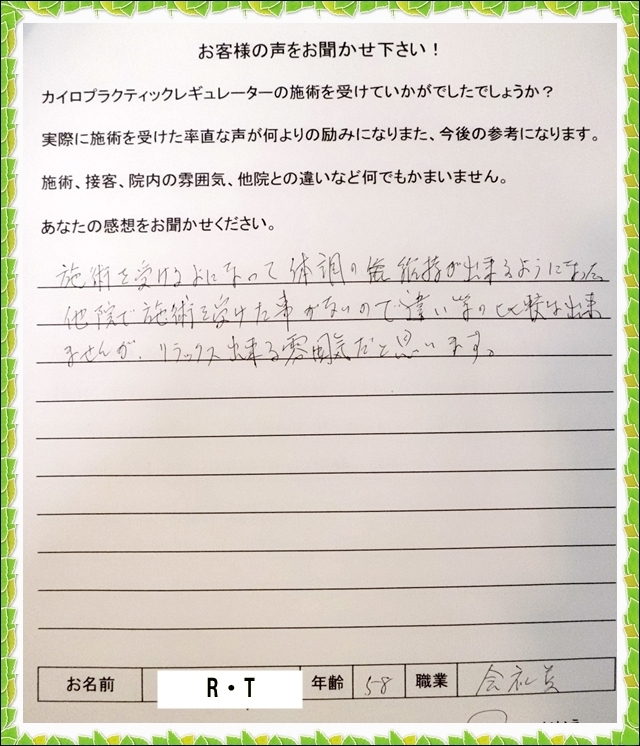 お客様の声をお聞かせ下さい！
カイロプラクティックレギュレーターの施術を受けていかがでしたでしょうか？
実際に施術を受けた率直な声が何よりの励みになりまた、今後の参考になります。
施術、接客、院内の雰囲気、他院との違いなど何でもかまいません。
あなたの感想をお聞かせください。
施術を受けるよになって体調の維持が出来るようになった。
他院で施術を受けた事がないので違い等の比較は出来
ませんが、リラックス出来る雰囲気だと思います。
お名前 R・T 年齢 58 職業 会社員